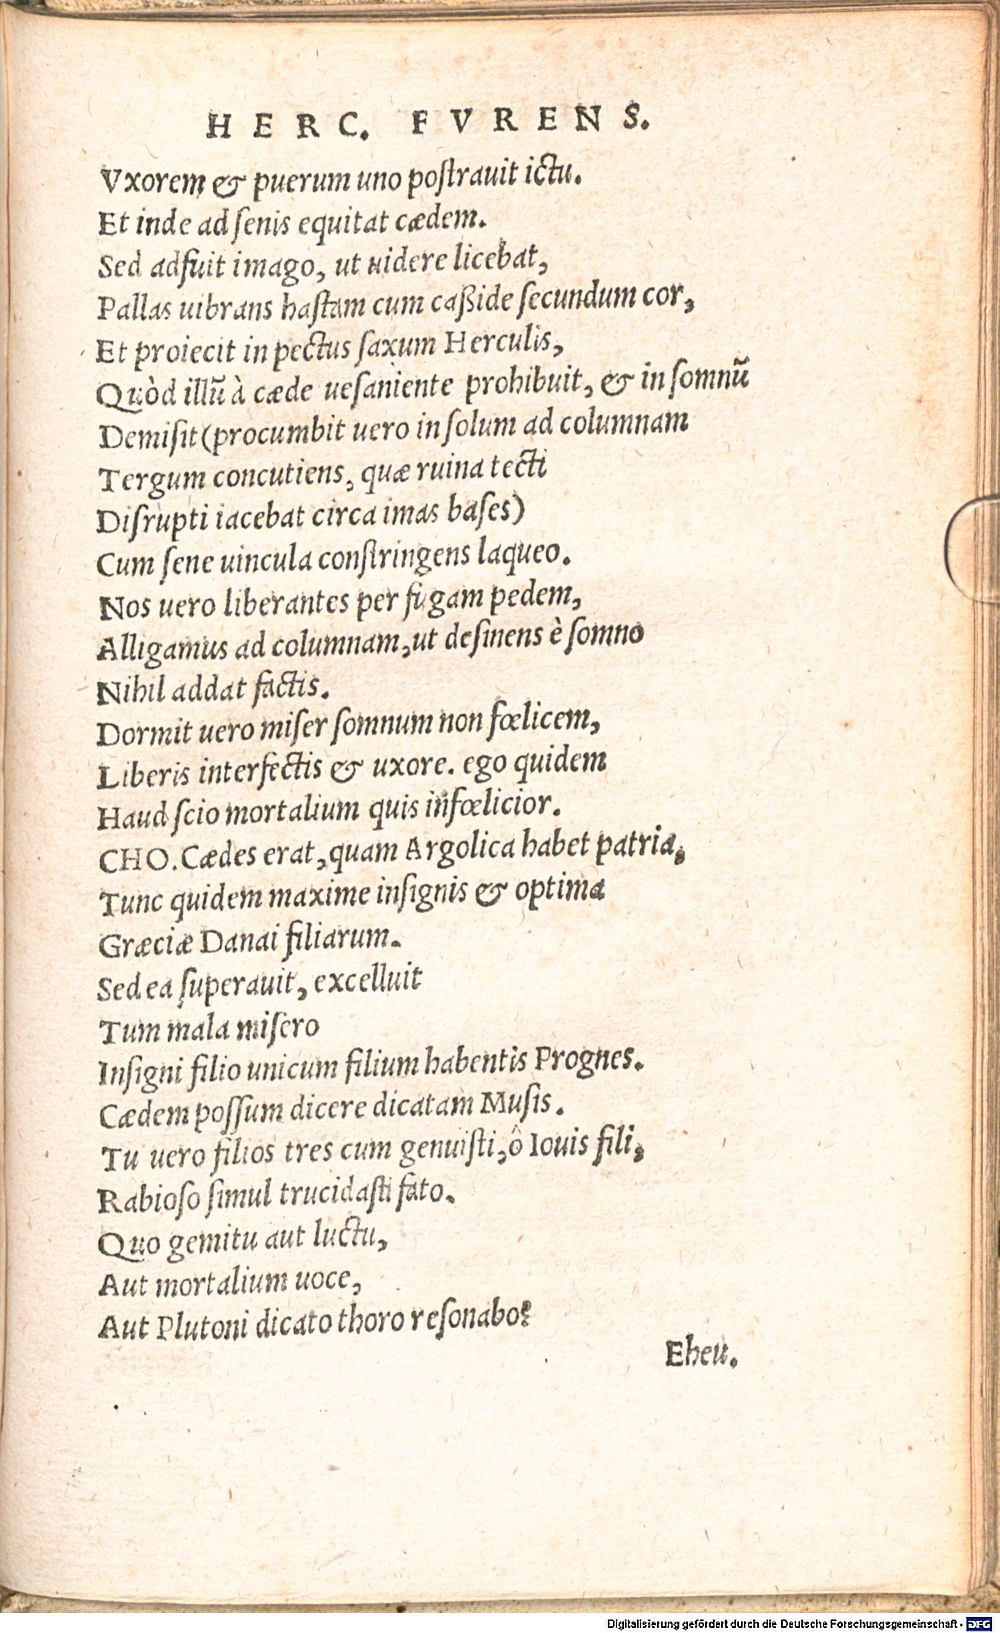 HERC. FVRENS.
Vxorem & puerum uno postrauit ictu.
Et inde ad senis equitat cædem.
Sed adfuit imago, ut uidere licebat,
Pallas uibrans hastam cum caßide secundum cor,
Et proiecit in pectus saxum Herculis,
Quòd illũ à cæde uesaniente prohibuit, & in somnũ
Demisit (procumbit uero in solum ad columnam
Tergum concutiens, quæ ruina tecti
Disrupti iacebat circa imas bases)
Cum sene uincula constringens laqueo.
Nos uero liberantes per fugam pedem,
Alligamus ad columnam, ut desinens è somno
Nihil addat factis.
Dormit uero miser somnum non fœlicem,
Liberis interfectis & uxore. ego quidem
Haud scio mortalium quis infœlicior.
CHO. Cædes erat, quam Argolica habet patria,
Tunc quidem maxime insignis & optima
Græciæ Danai filiarum.
Sed ea superauit, excelluit
Tum mala misero
Insigni filio unicum filium habentis Prognes.
Cædem possum dicere dicatam Musis.
Tu uero filios tres cum genuisti, ô Iouis fili,
Rabioso simul trucidasti fato.
Quo gemitu aut luctu,
Aut mortalium uoce,
Aut Plutoni dicato thoro resonabo?
Eheu.
Digitalisierung gefördert durch die Deutsche Forschungsgemeinschaft - DFG